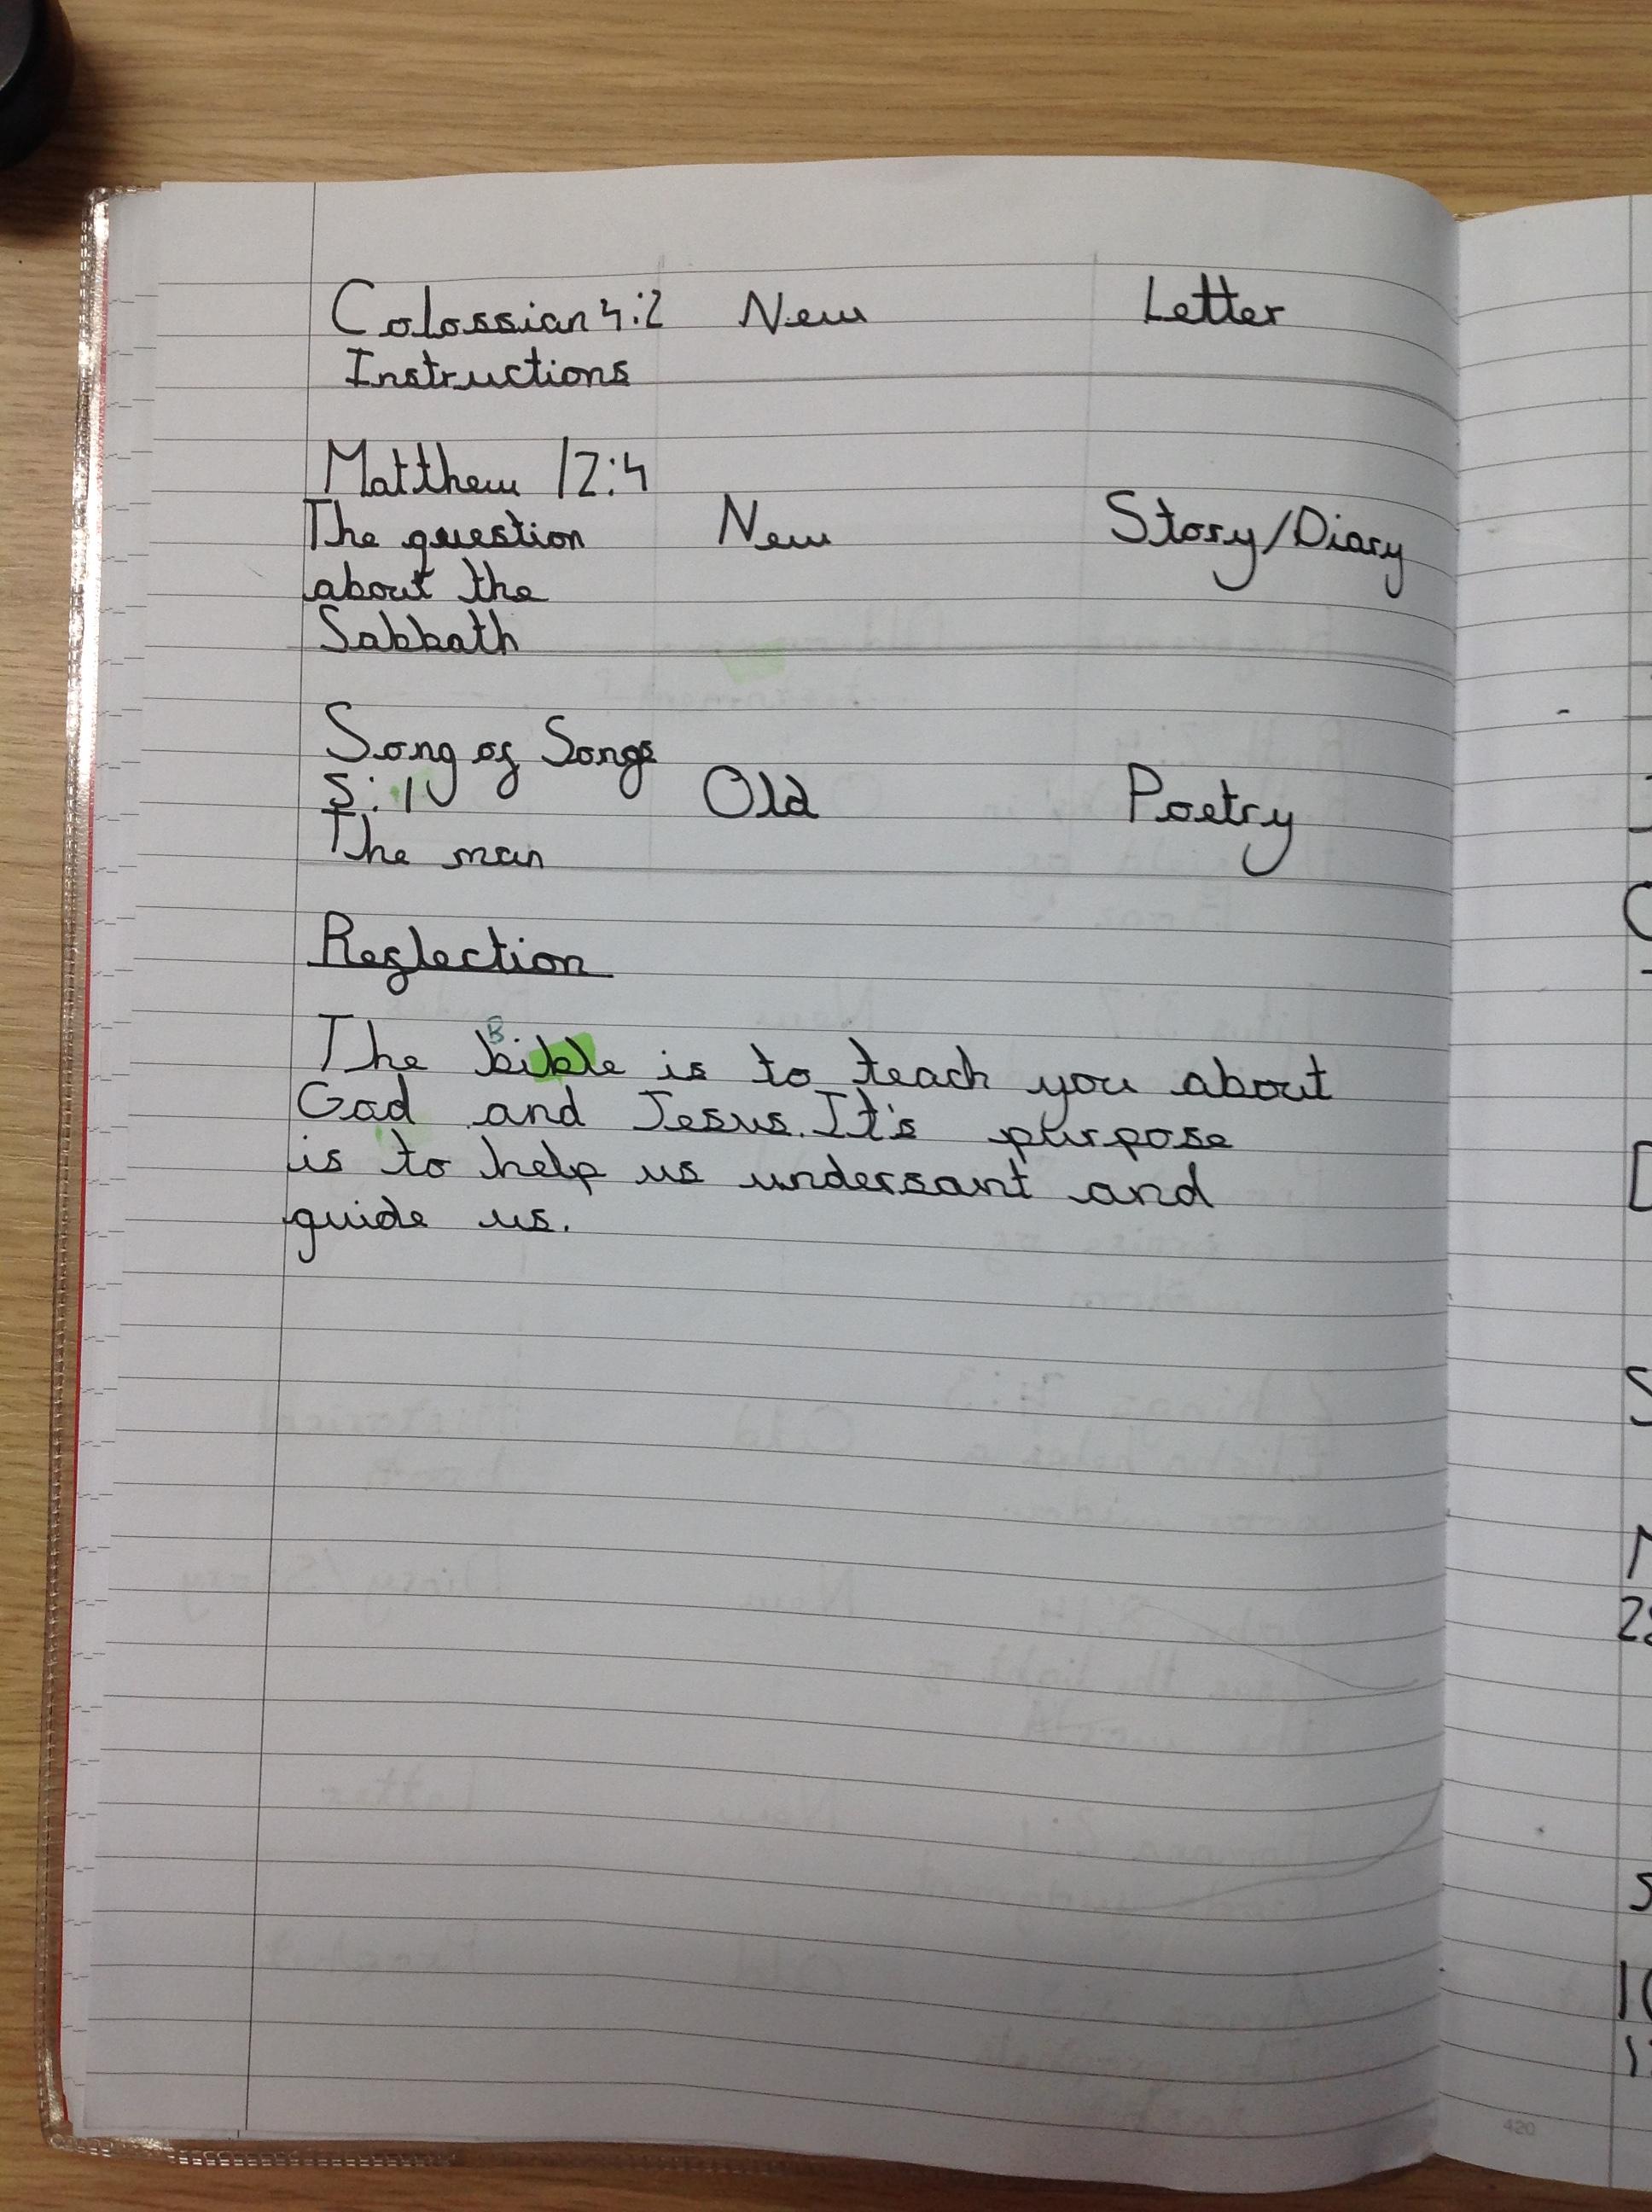 Colossian 4:2 New Letter
Instructions
Matthew 12:4
The question New Story/Diary
about the
Sabbath
Song of Songs
5:1 Old Poetry
The man
Reflection
B
The bible is to teach you about
God and Jesus. It's purpose
is to help us undersant and
guide us.
420